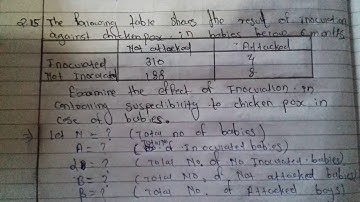 Q.15 The following table shows the result of inoculation
against chickenpox in babies below 6 months.
Not attacked Attacked
Inoculated 310 4
Not Inoculated 188 8
Examine the effect of Inoculation in
controlling susceptibility to chicken pox in
case of babies.
⇒ Let N = ? (Total no of babies)
A = ? (Total No of Inoculated babies)
α = ? (Total No, of No Inoculated babies)
B = ? (Total No, of Not attacked babies)
β = ? (Total No, of Attacked boys)